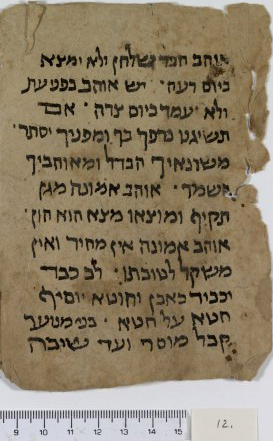 אוהב חבר שלחן ולא ימצא
ביום רעה · יש אוהב כפני עת
ולא יעמד ביום צרה · אם
תשיגנו נהפך בך ומפניך יסתר ·
משונאיך הבדל ומאוהביך
השמר · אוהב אמונה מגן
תקיף ומוצאו מצא הוא הון ·
אוהב אמונה אין מחיר ואין
משקל לטובתו · לב כבד
יכביד כאבין וחוטא יוסיף
חטא על חטא · בני מנוער
קבל מוסר ועד שיבה
9 10 11 12 13 14 15
12.